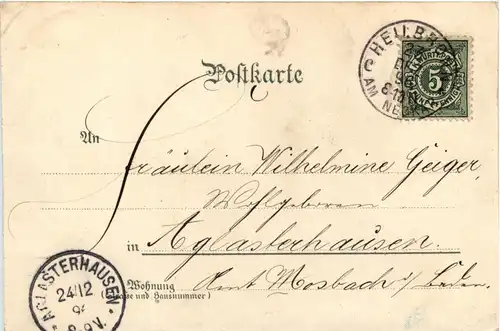 HEILBR
AM NE
5
Postkarte
An
Fräulein Wilhelmine Geiger,
Wohlgeboren
in Aglasterhausen.
Wohnung
(Straße und Hausnummer)
Amt Mosbach i/ Baden.
AGLASTERHAUSEN
24 12
8-9V.